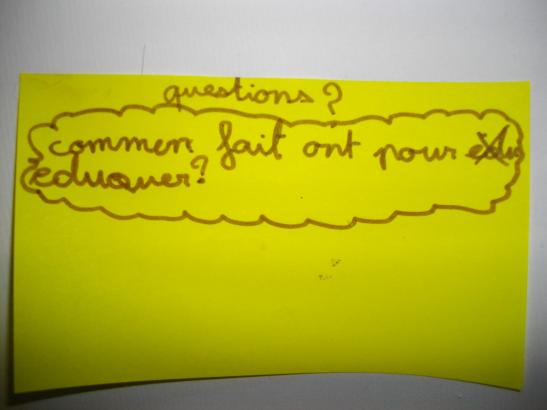 questions ?
commen fait ont pour
eduquer ?